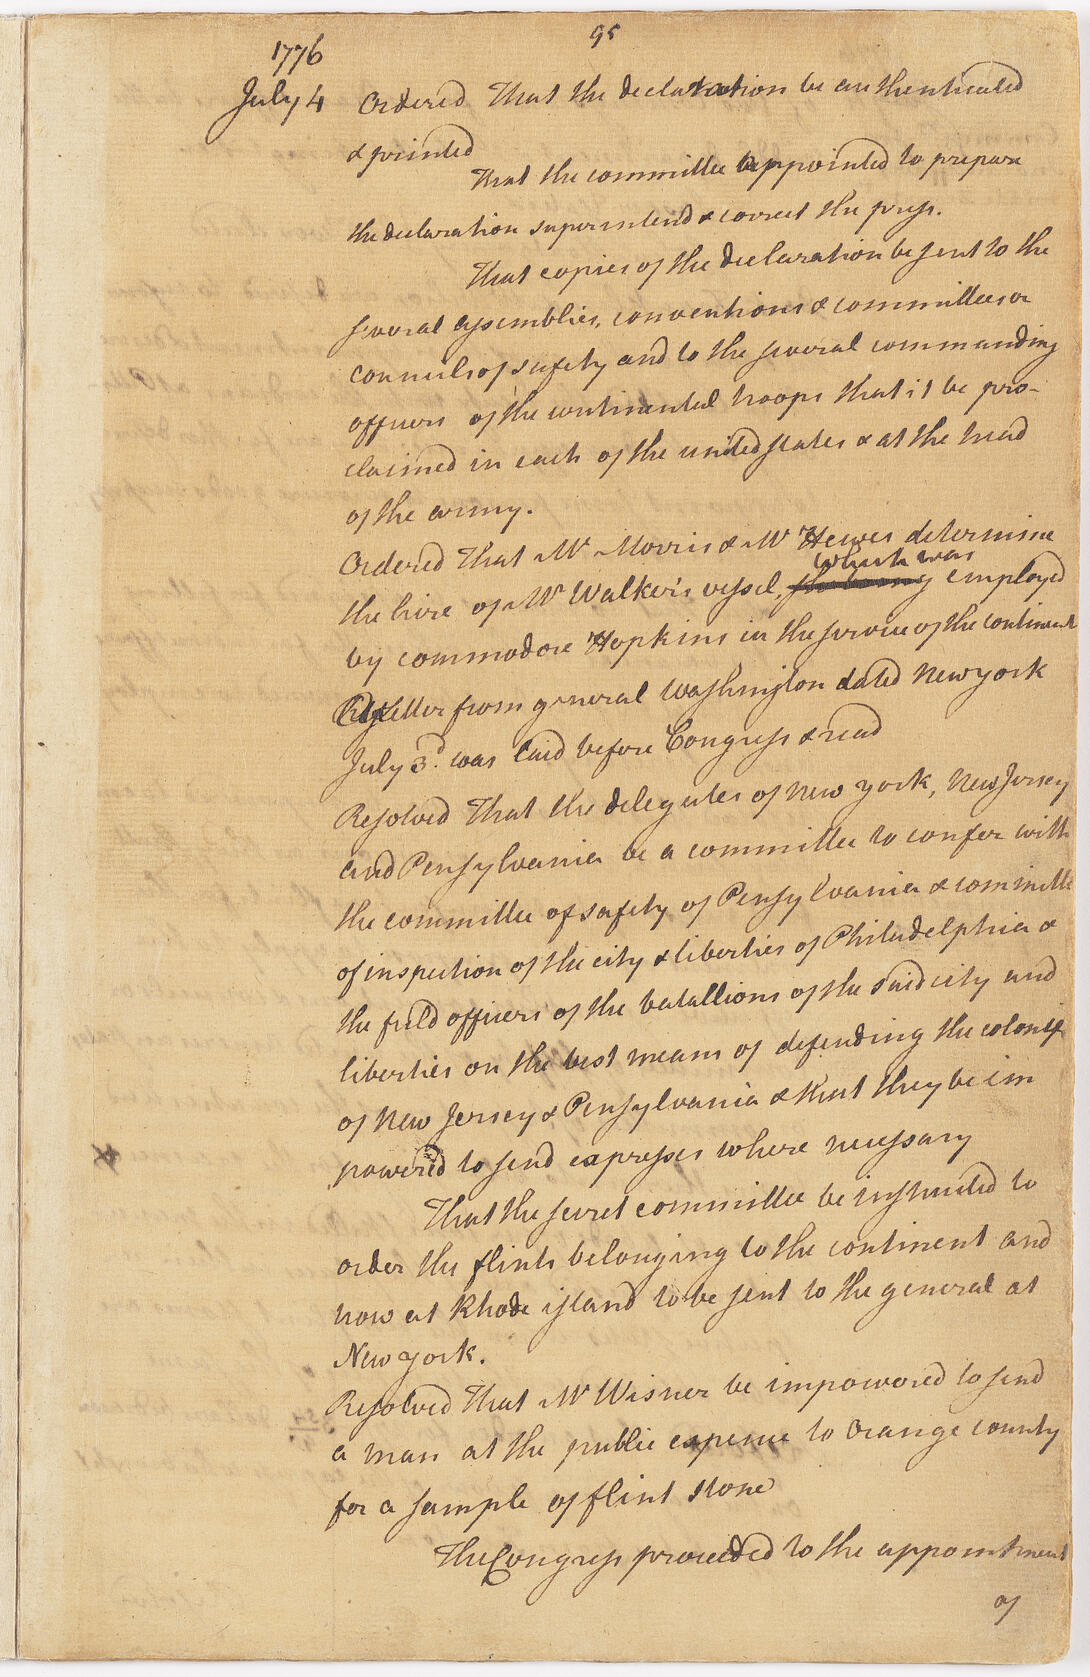 95
1776
July 4 Ordered That the declaration be authenticated
& printed
That the committee appointed to prepare
the declaration superintend & correct the press.
That copies of the declaration be sent to the
several assemblies, conventions & committees or
councils of safety and to the several commanding
officers of the continental troops that it be pro-
claimed in each of the united states & at the head
of the army.
Ordered That Mr Morris & Mr Hewes determine
which was
the hire of Mr Walker's vessel, she being employed
by commodore Hopkins in the service of the continent
letter from general Washington dated New york
July 3d. was laid before Congress & read
Resolved That the delegates of new york, New Jersey
and Pensylvania be a committee to confer with
the committee of safety of Pensylvania & committee
of inspection of the city & liberties of Philadelphia &
the field officers of the batallions of the said city and
liberties on the best means of defending the colonies
of New Jersey & Pensylvania & that they be im
powered to send expresses where necessary
That the secret committee be instructed to
order the flints belonging to the continent and
now at Rhode island to be sent to the general at
New york.
Resolved That Mr Wisner be impowered to send
a man at the public expence to Orange county
for a sample of flint stone
The Congress proceeded to the appointment
of